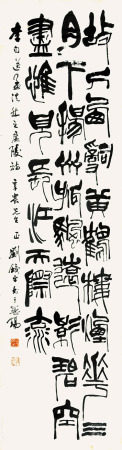 故人西辭黃鶴樓煙花三
月下揚州孤帆遠影碧空
盡惟見長江天際流
李白送孟浩然之廣陵詩 先生正 劉